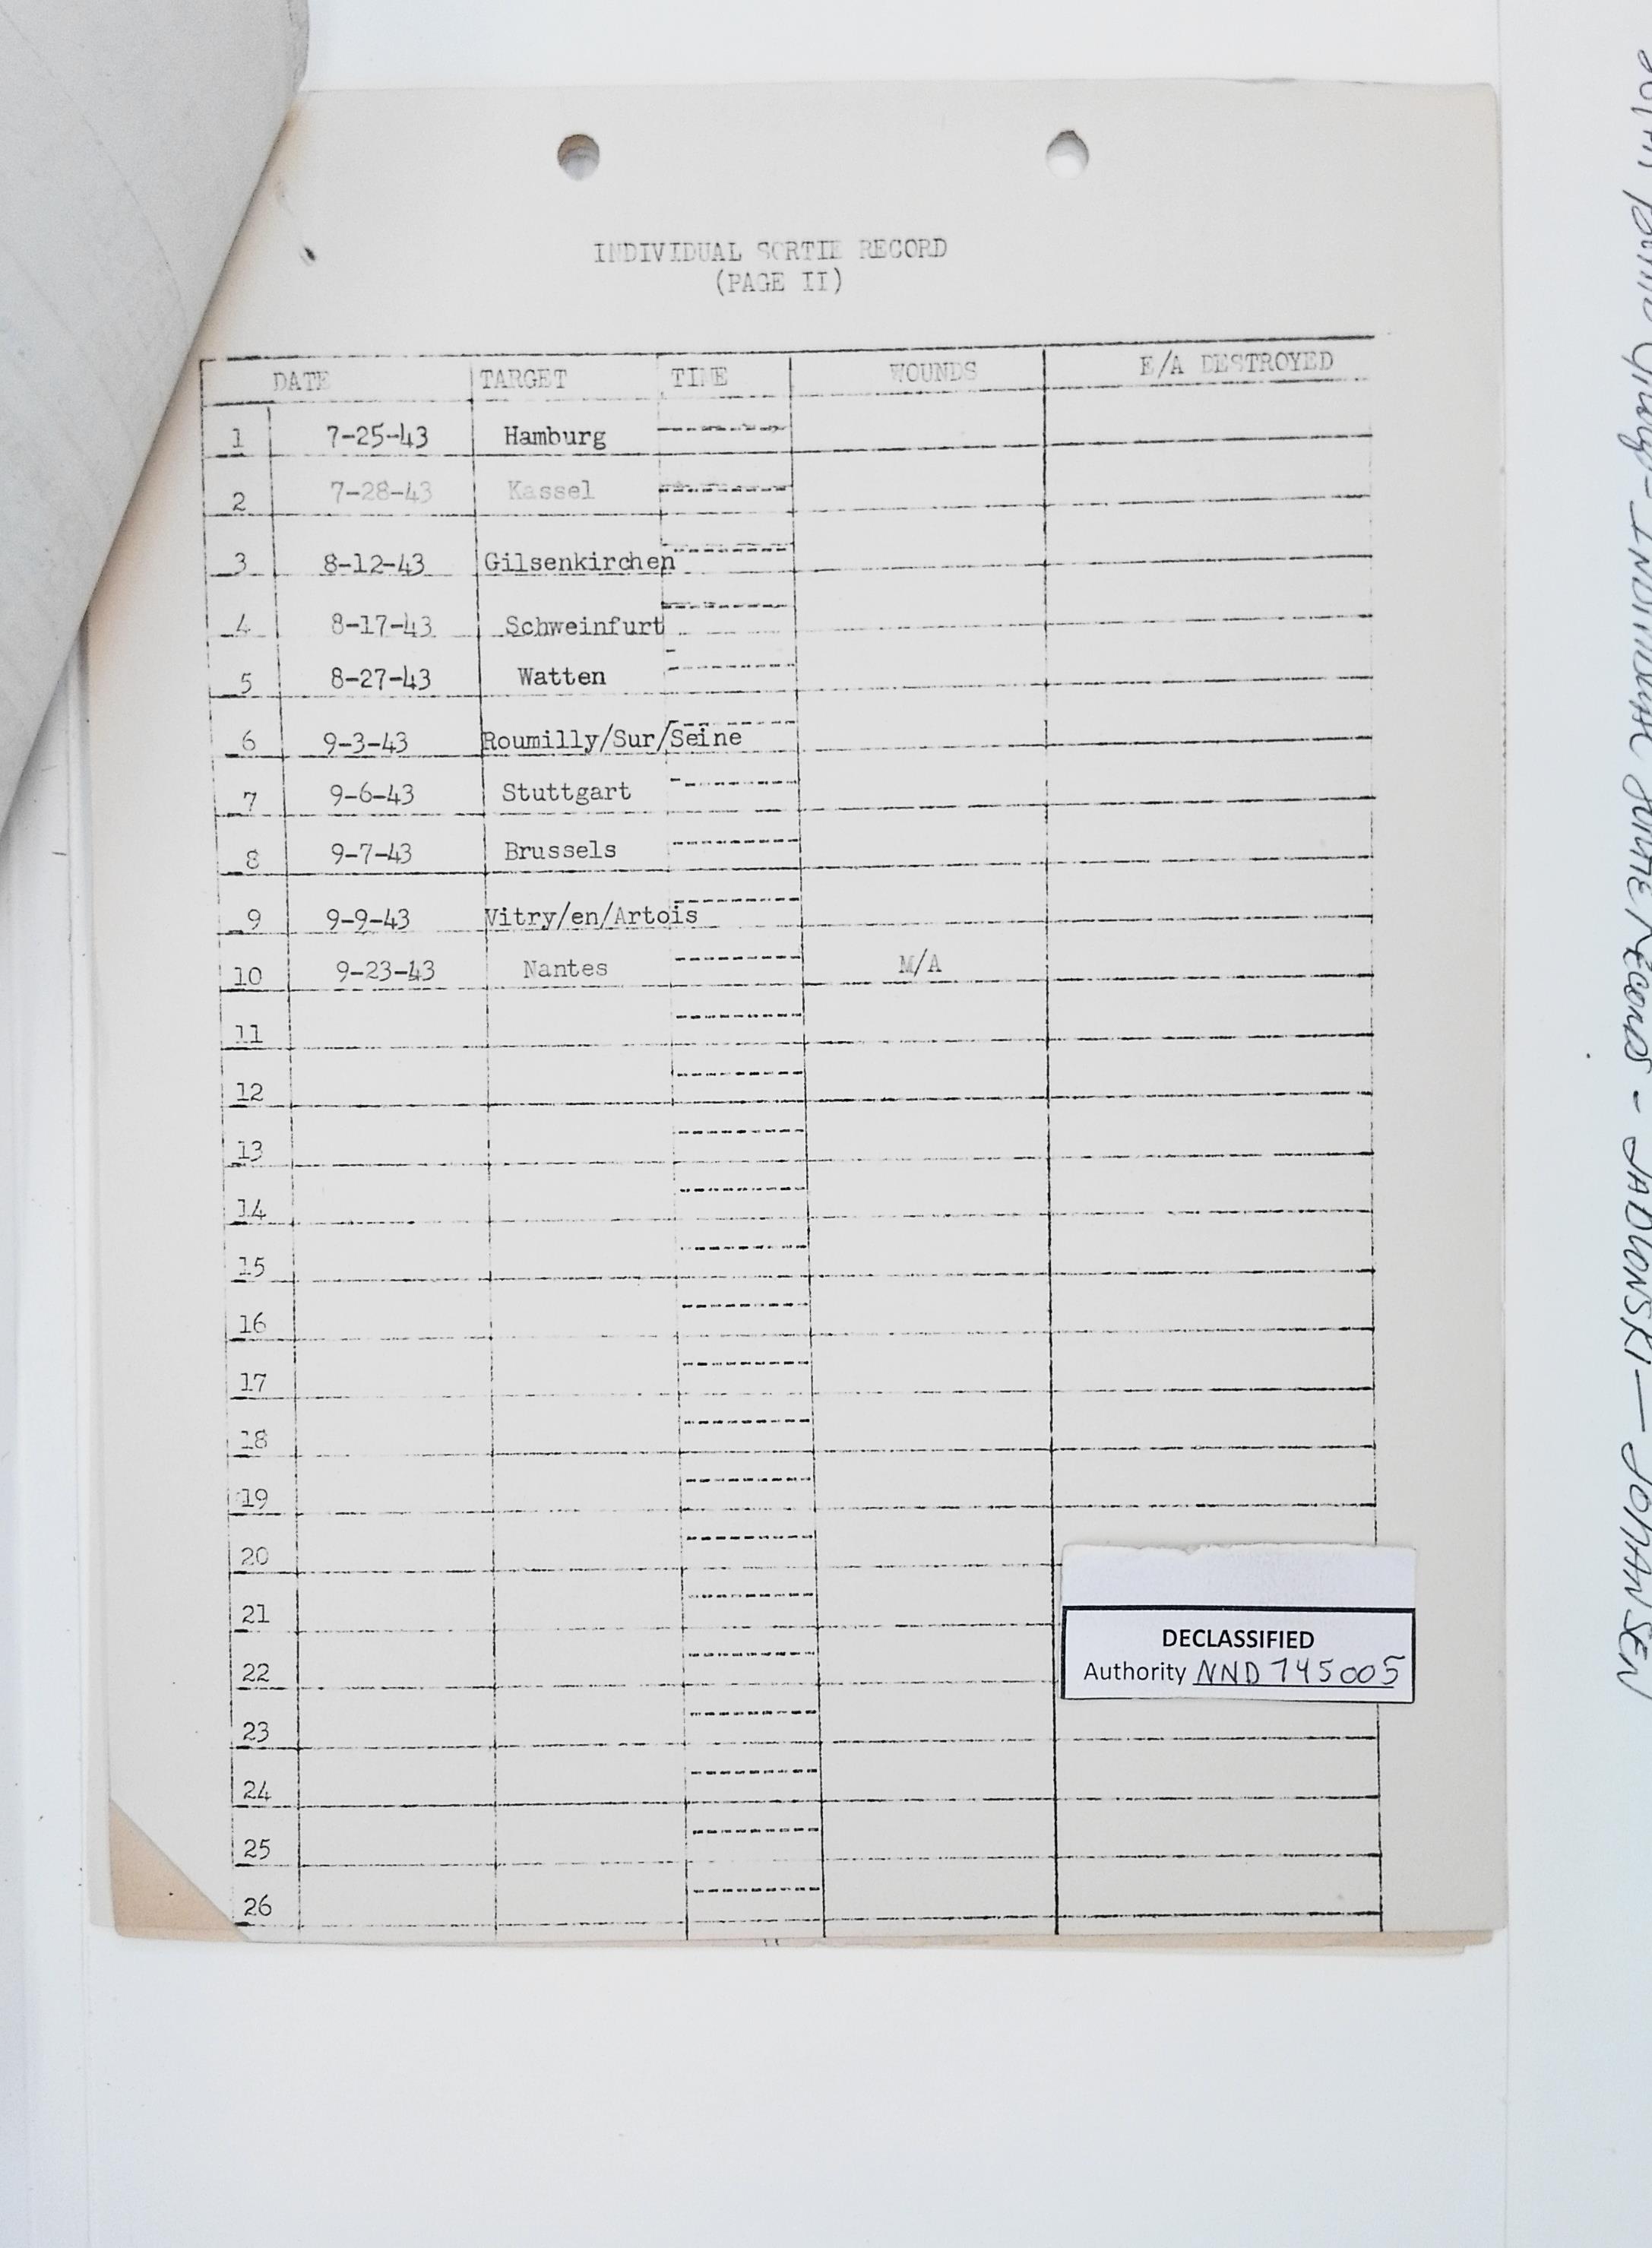 INDIVIDUAL SORTIE RECORD
(PAGE II)
DATE TARGET TIME WOUNDS E/A DESTROYED
1 7-25-43 Hamburg
2 7-28-43 Kassel
3 8-12-43 Gilsenkirchen
4 8-17-43 Schweinfurt
5 8-27-43 Watten
6 9-3-43 Roumilly/Sur/Seine
7 9-6-43 Stuttgart
8 9-7-43 Brussels
9 9-9-43 Vitry/en/Artois
10 9-23-43 Nantes M/A
11
12
13
14
15
16
17
18
19
20
21
22
23
24
25
26
DECLASSIFIED
Authority NND 745005
Bomb Group - INDIVIDUAL SORTIE RECORDS - JADLONSKI — JOHANSEN